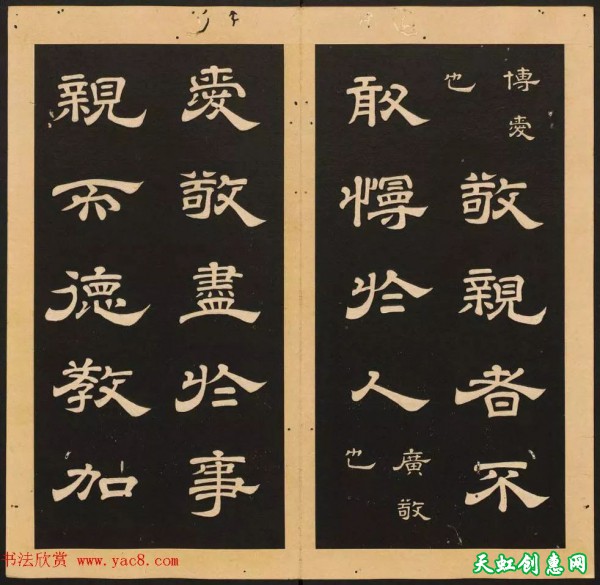 博愛也敬親者不
敢慢於人廣敬也
愛敬盡於事
親而德教加
书法欣赏 www.yac8.com
天虹创惠网